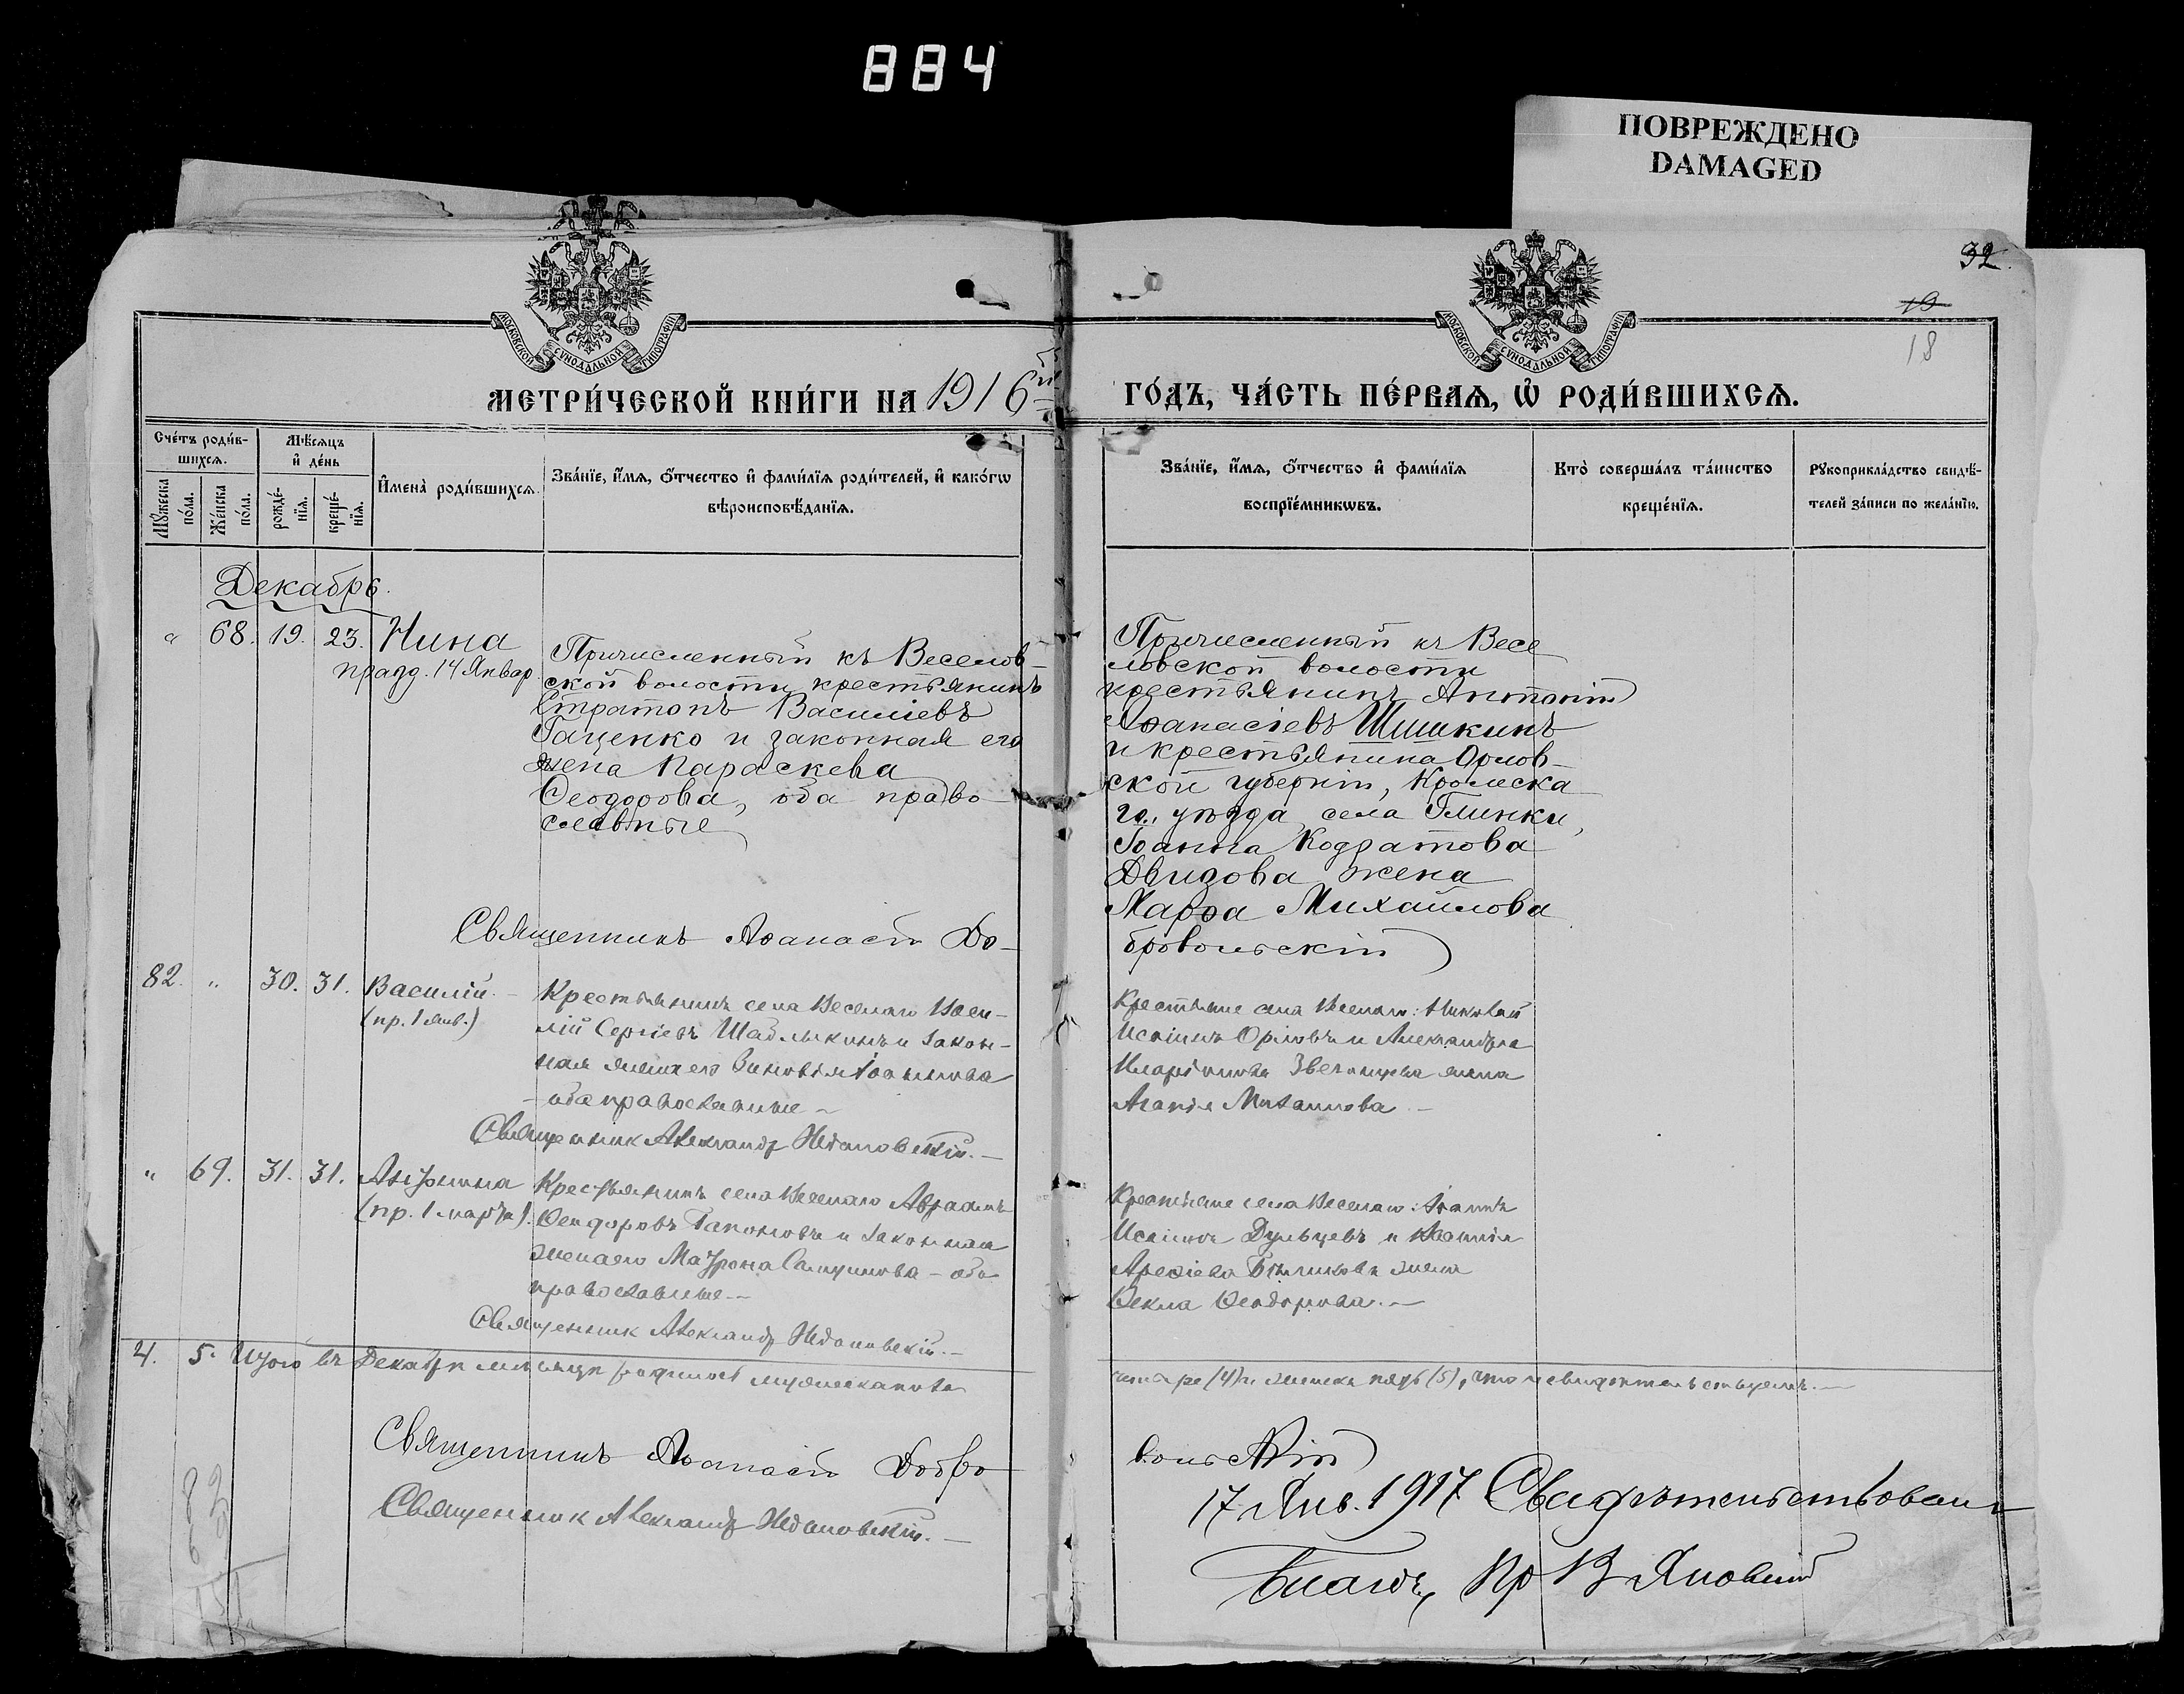 884
ПОВРЕЖДЕНО
DAMAGED
32.
19
18
МОСКОВСКОЙ СѴНОДАЛЬНОЙ ТИПОГРАФІИ
МОСКОВСКОЙ СѴНОДАЛЬНОЙ ТИПОГРАФІИ
МЕТРИ́ЧЕСКОЙ КНИ́ГИ НА 1916й
ГО́ДЪ, ЧА́СТЬ ПЕ́РВАѦ, Ѡ҆ РОДИ́ВШИХСѦ.
Сче́тъ роди́в-
шихсѧ.
Мѣ́сѧцъ
и҆ де́нь
Мꙋ́жеска по́ла.
Же́нска по́ла.
рожде́-
нїѧ.
креще́-
нїѧ.
И҆мена̀ роди́вшихсѧ.
Зва́нїе, и҆́мѧ, ѻ҆́тчество и҆ фами́лїѧ роди́телей, и҆ како́гѡ
вѣроисповѣ́данїѧ.
Зва́нїе, и҆́мѧ, ѻ҆́тчество и҆ фами́лїѧ
воспрїе́мникѡвъ.
Кто̀ соверша́лъ та́инство
креще́нїѧ.
Рꙋкоприкла́дство свидѣ́-
телей за́писи по жела́нїю.
Декабрь.
" 68. 19. 23. Нина
празд. 14 Январ.
Причисленный къ Веселов-
ской волости крестьянинъ
Стратонъ Василіевъ
Гаценко и законная его
жена Параскева
Ѳеодорова, оба право-
славные
Причисленный къ Весе
ловской волости
крестьянинъ Антоній
Аѳанасіевъ Шишкинъ
и крестьянина Орлов-
ской губерніи, Кромска
го, уѣзда села Глинки,
Іоанна Кодратова
жена
Марѳа Михайлова
Священникъ Аѳанасій До-
бровольскій
82. " 30. 31. Василій. -
(пр. 1 янв.)
Крестьянинъ села Веселаго Васи-
лій Сергіевъ Шаблыкинъ и закон-
ная жена его Зиновія Іоаннова
- оба православные -
Крестьяне села Веселаго: Николай
Исаіинъ Орловъ и Александра
Иларіонова жена
Агапія Михаилова. -
Священник Александр Ждановскій. -
" 69. 31. 31. Антонина
(пр. 1 марта).
Крестьянинъ села Веселаго Авраамъ
Ѳеодоровъ Гапоновъ и законная
жена его Матрона - оба
православные. -
Крестьяне села Веселаго: Іоаннъ
Исаіинъ и
жена
Ѳекла Ѳеодорова. -
Священник Александр Ждановскій. -
4. 5. Итого въ Декабрѣ мѣсяцѣ родилось мужеска пола
четыре (4) и женска пять (5), что и свидѣтельствуемъ. -
Священникъ Аѳанасій Добро
вольскій
Священник Александр Ждановскій. -
17 Янв. 1917 Свидѣтельствовалъ
Благоч. Пр В Яновскій